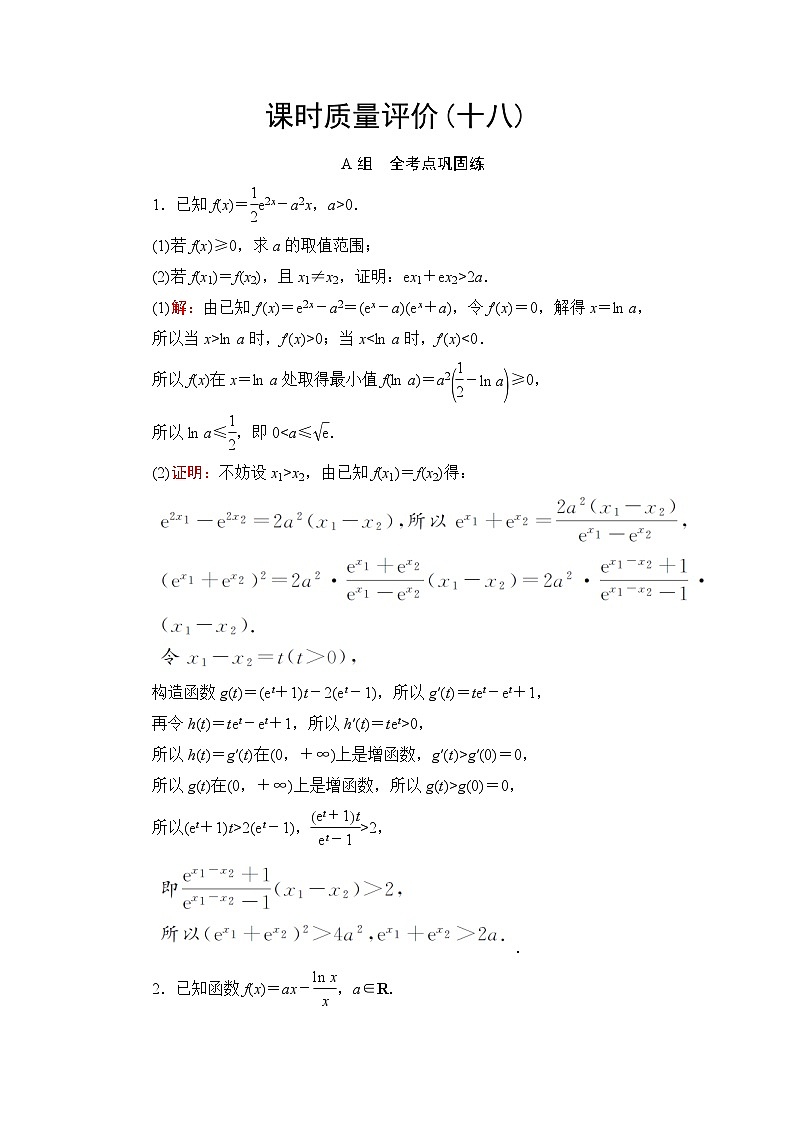 课时质量评价(十八)
A组　全考点巩固练
1．已知f(x)＝\frac{1}{2}e^{2x}－a^{2}x，a>0．
(1)若f(x)≥0，求a的取值范围；
(2)若f(x_{1})＝f(x_{2})，且x_{1}≠x_{2}，证明：ex_{1}＋ex_{2}>2a．
(1)解：由已知f′(x)＝e^{2x}－a^{2}＝(e^{x}－a)(e^{x}＋a)，令f′(x)＝0，解得x＝ln a，
所以当x>ln a时，f′(x)>0；当x<ln a时，f′(x)<0．
所以f(x)在x＝ln a处取得最小值f(ln a)＝a^{2}(\frac{1}{2}－ln a)≥0，
所以ln a≤\frac{1}{2}，即0<a≤\sqrt{e}．
(2)证明：不妨设x_{1}>x_{2}，由已知f(x_{1})＝f(x_{2})得：
e^{2x_{1}}－e^{2x_{2}}＝2a^{2}(x_{1}－x_{2})，所以e^{x_{1}}＋e^{x_{2}}＝\frac{2a^{2}(x_{1}－x_{2})}{e^{x_{1}}－e^{x_{2}}}，
(e^{x_{1}}＋e^{x_{2}})^{2}＝2a^{2}·\frac{e^{x_{1}}＋e^{x_{2}}}{e^{x_{1}}－e^{x_{2}}}(x_{1}－x_{2})＝2a^{2}·\frac{e^{x_{1}－x_{2}}＋1}{e^{x_{1}－x_{2}}－1}·
(x_{1}－x_{2})．
令x_{1}－x_{2}＝t(t＞0)，
构造函数g(t)＝(e^{t}＋1)t－2(e^{t}－1)，所以g′(t)＝te^{t}－e^{t}＋1，
再令h(t)＝te^{t}－e^{t}＋1，所以h′(t)＝te^{t}>0，
所以h(t)＝g′(t)在(0，＋∞)上是增函数，g′(t)>g′(0)＝0，
所以g(t)在(0，＋∞)上是增函数，所以g(t)>g(0)＝0，
所以(e^{t}＋1)t>2(e^{t}－1)，\frac{(e^{t}＋1)t}{e^{t}－1}>2，
即\frac{e^{x_{1}－x_{2}}＋1}{e^{x_{1}－x_{2}}－1}(x_{1}－x_{2})＞2，
所以(e^{x_{1}}＋e^{x_{2}})^{2}＞4a^{2}，e^{x_{1}}＋e^{x_{2}}＞2a．.
2．已知函数f(x)＝ax－\frac{ln x}{x}，a∈R．